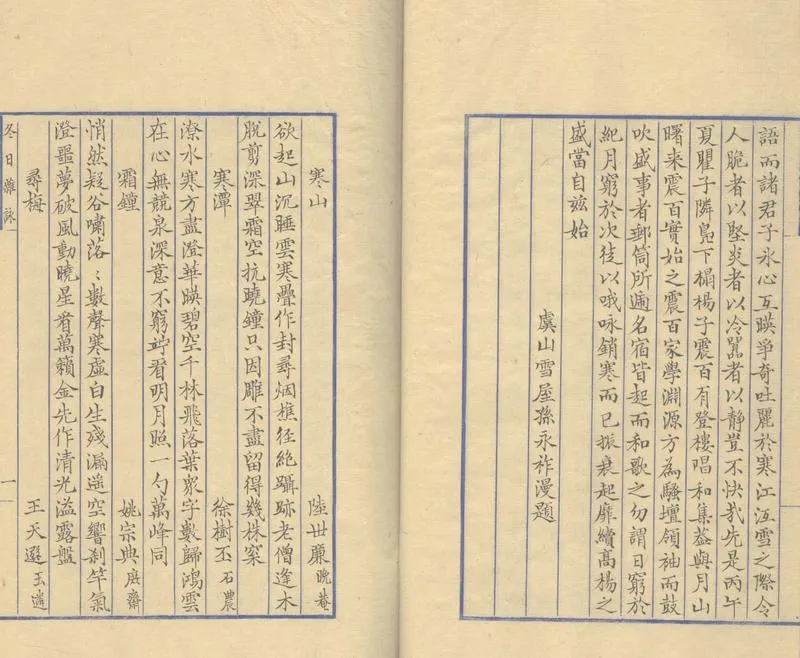 語而諸君子永心互暎爭奇吐麗於寒江沍雪之際令
人脆者以堅炎者以冷囂者以靜豈不快哉先是丙午
夏瞿子隣鳧下榻楊子震百有登樓唱和集蓋與月山
曙来震百實始之震百家學淵源方為騷壇領袖而鼓
吹盛事者郵筒所遍名宿皆起而和歌之勿謂日窮於
紀月窮於次徒以哦咏銷寒而已振衰起靡續高楊之
盛當自茲始
虞山雪屋孫永祚漫題
冬日雜詠
一
寒山
陸世廉晚菴
欲起山沉睡雲寒疊作封尋烟樵径絶躡跡老僧逢木
脫剪深翠霜空抗曉鐘只因雕不盡留得幾株窠
寒潭
徐樹丕石農
潦水寒方盡澄華暎碧空千林飛落葉眾字數歸鴻雲
在心無競泉深意不窮竚看明月照一勺萬峰同
霜鐘
姚宗典庡齋
悄然疑谷嘯落〻數聲寒虛白生殘漏遥空響刹竿氣
澄噩夢破風動曉星看萬籟金先作清光溢露盤
尋梅
王天遯玉遴